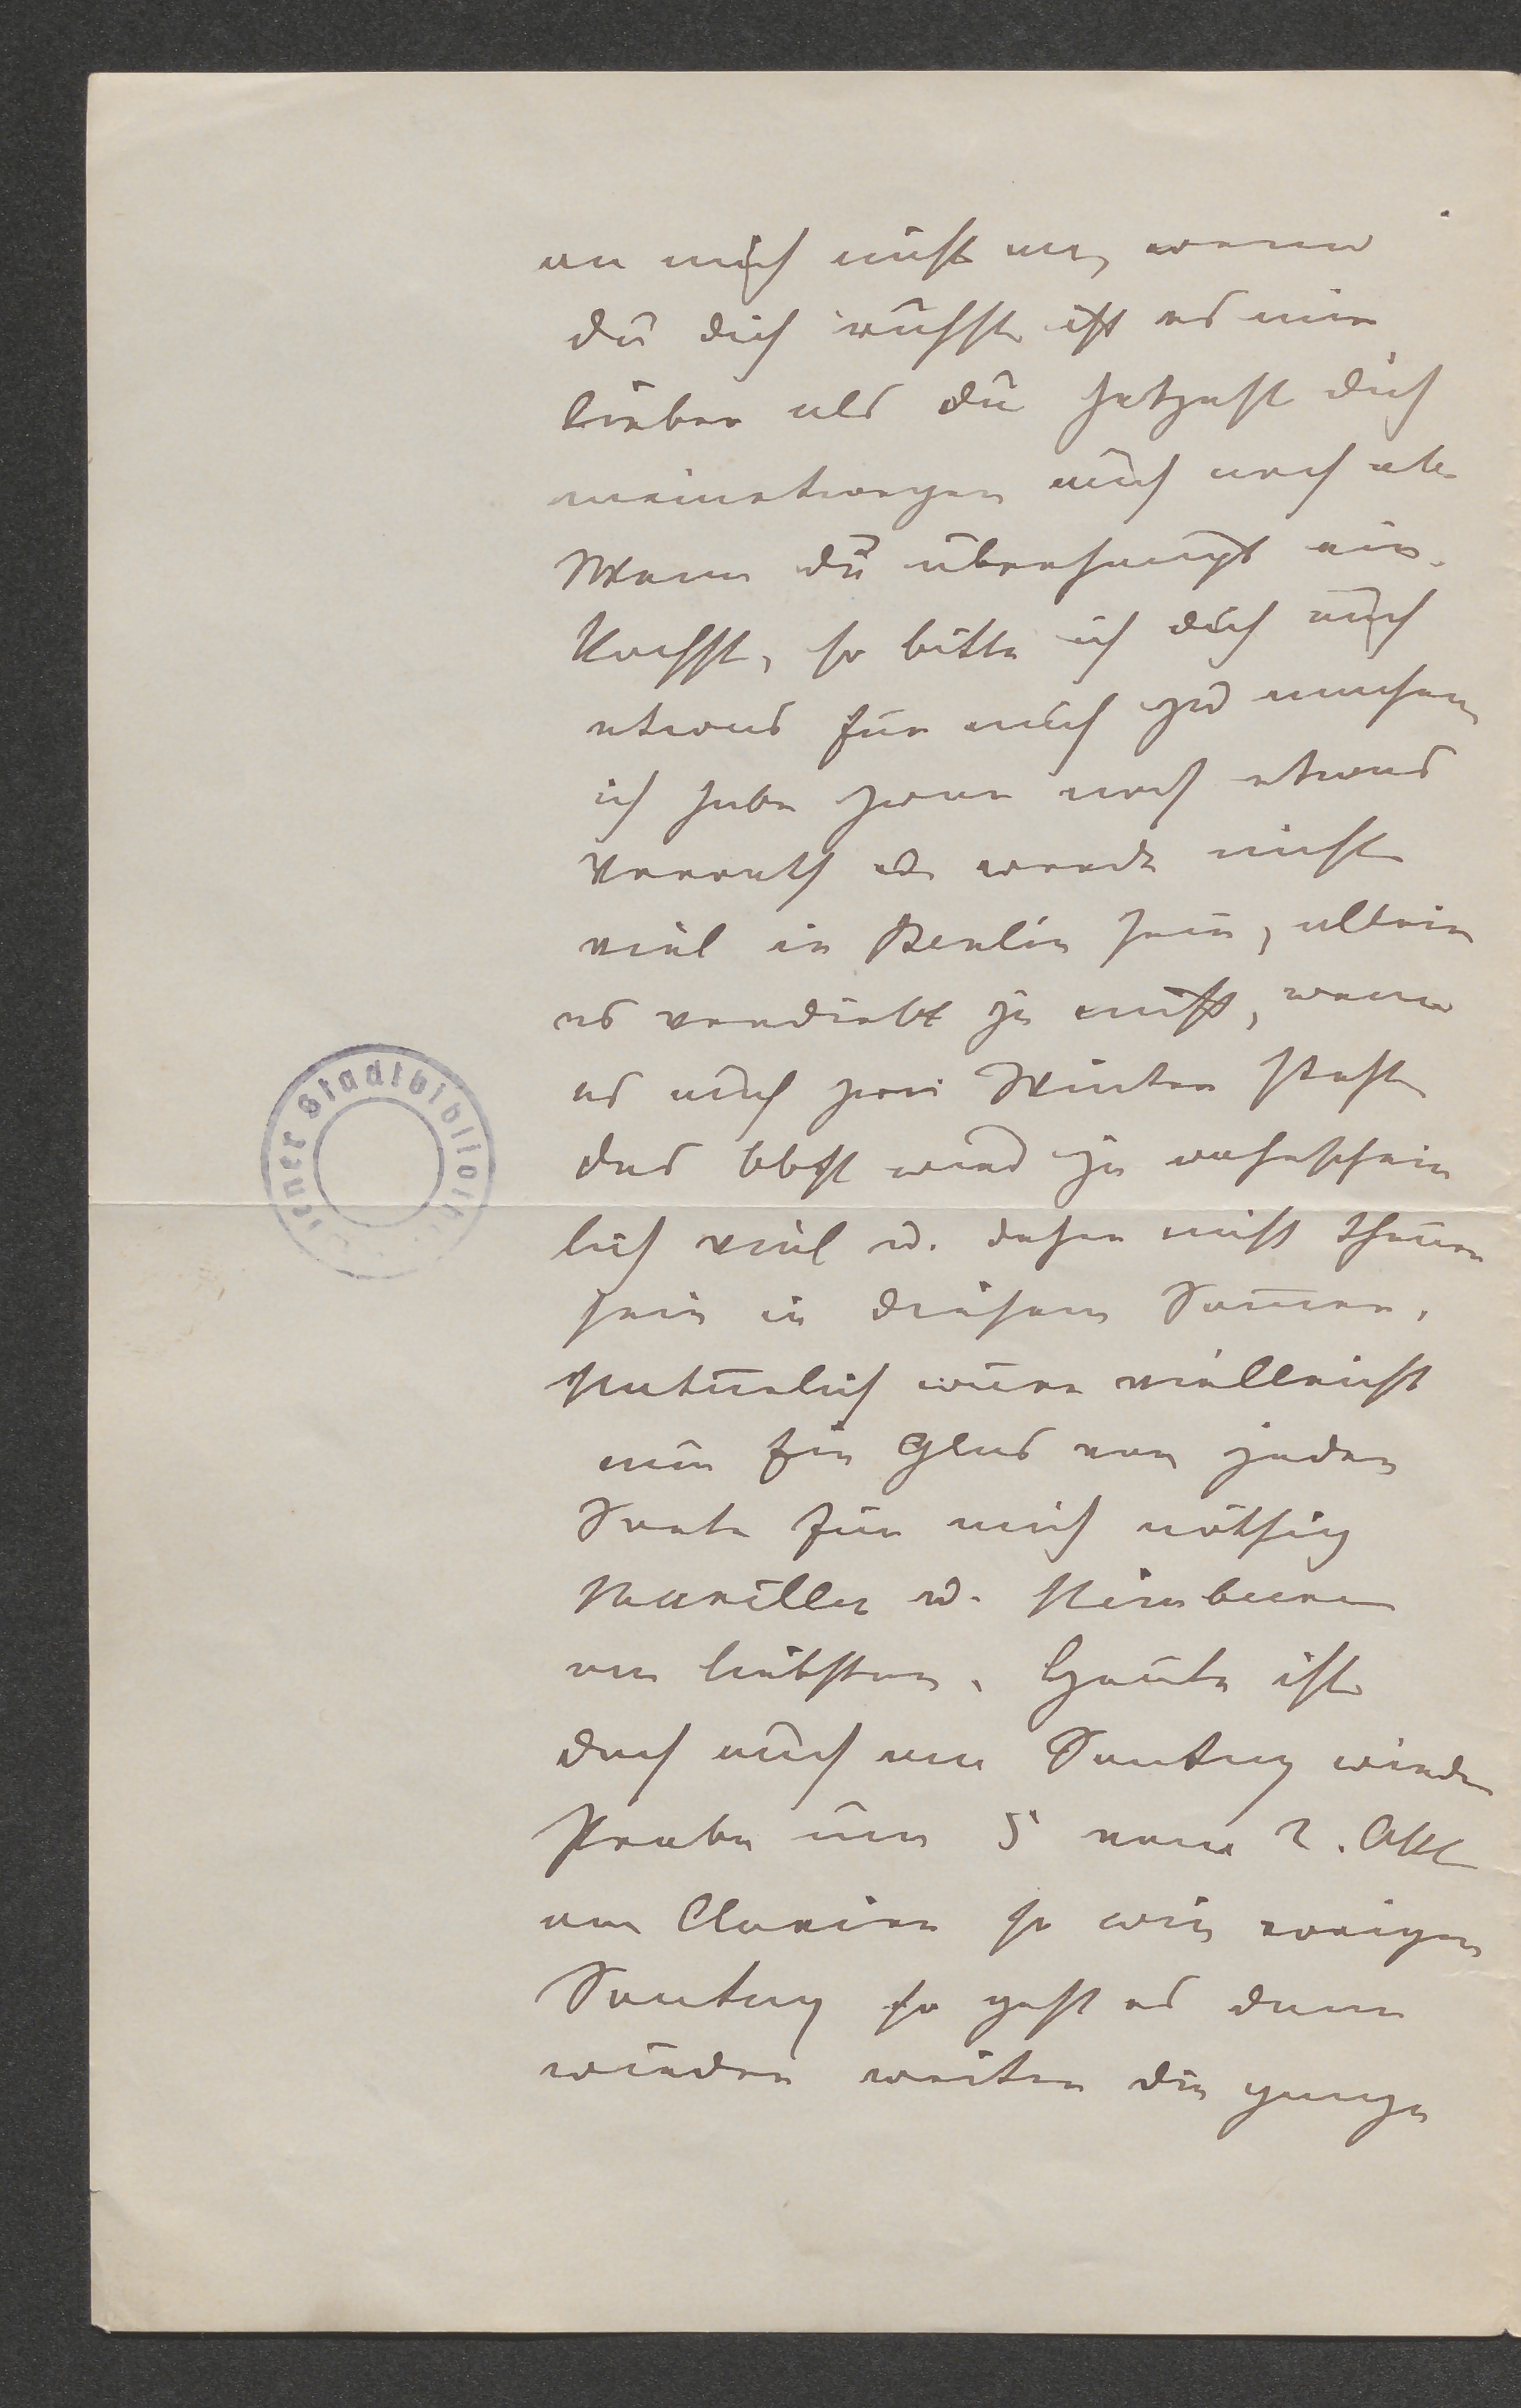 an mich nicht an, wenn
du dich ruhst ist es mir
lieber als du hetzest dich
meinetwegen auch noch ab.
Wenn du überhaupt ein-
kochst, so bitte ich dich auch
etwas für mich zu machen
ich habe zwar noch etwas
Vorrath u. werde nicht
viel in Berlin sein, allein
es verdirbt ja nicht, wenn
es auch zwei Winter steht
das Obst wird ja wahrschein
lich viel u. daher nicht theuer
sein in diesem Somer.
Natürlich wäre vielleicht
nur ein Glas von jeder
Sorte für mich nöthig
Marillen u. Himbeeren
am liebsten. Heute ist
doch auch am Sontag wieder
Probe um 5 vom 2. Akt
am Clavier so wie vorigen
Sontag so geht es dann
wieder weiter die ganze
iener Stadtbiblioth